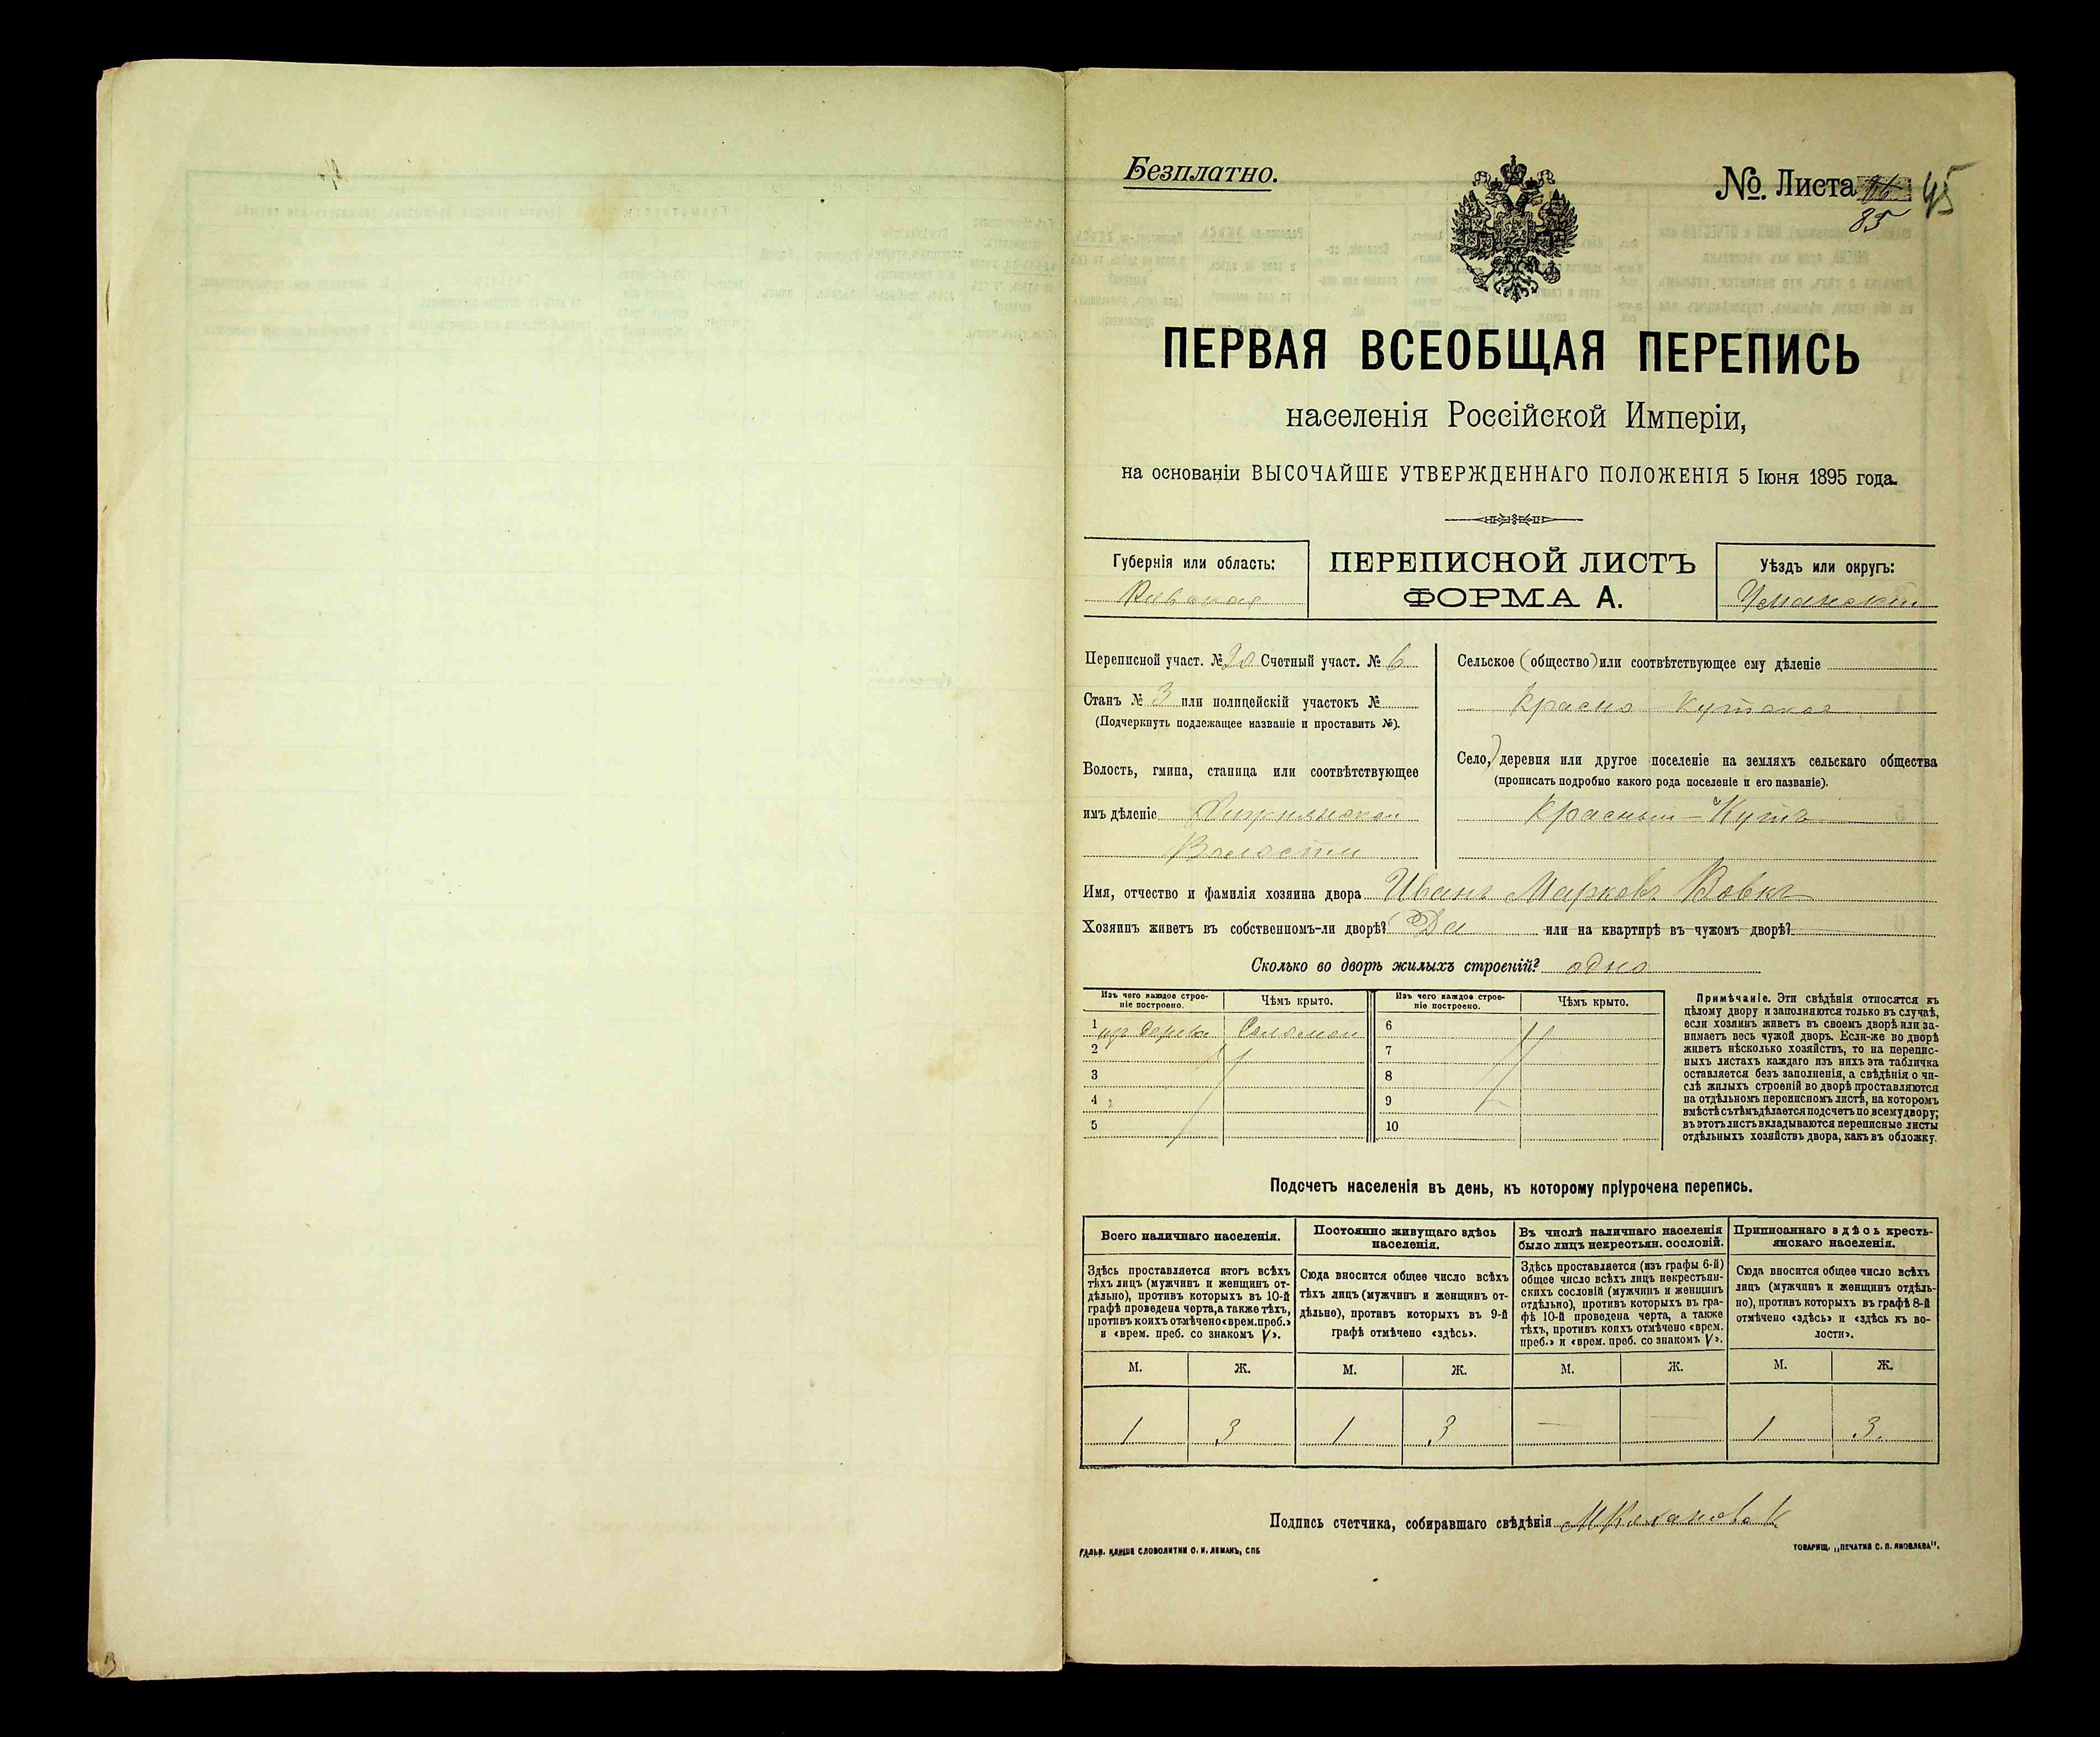 Безплатно.
№ Листа 85 45
ПЕРВАЯ ВСЕОБЩАЯ ПЕРЕПИСЬ
населенія Россійской Имперіи,
на основаніи ВЫСОЧАЙШЕ УТВЕРЖДЕННАГО ПОЛОЖЕНІЯ 5 Іюня 1895 года.
Губернія или область:
Кіевская
ПЕРЕПИСНОЙ ЛИСТЪ
ФОРМА А.
Уѣздъ или округъ:
Уманскій
Переписной участ. № 20 Счетный участ. № 6
Станъ № 3 или полицейскій участокъ №
(Подчеркнуть подлежащее названіе и проставить №).
Волость, гмина, станица или соотвѣтствующее
имъ дѣленіе
Волости
Сельское (общество) или соотвѣтствующее ему дѣленіе
Красно-Кутское
Село,) деревня или другое поселеніе на земляхъ сельскаго общества
(прописать подробно какого рода поселеніе и его названіе).
Красный-Кутъ
Имя, отчество и фамилія хозяина двора Иванъ Марковъ Вовкъ
Хозяинъ живетъ въ собственномъ-ли дворѣ? Да или на квартирѣ въ чужомъ дворѣ?
Сколько во дворѣ жилыхъ строеній? одно
Изъ чего каждое строе-
ніе построено.
Чѣмъ крыто.
Изъ чего каждое строе-
ніе построено.
Чѣмъ крыто.
1 изъ дерева Соломой 6
2 7
3 8
4 9
5 10
Примѣчаніе. Эти свѣдѣнія относятся къ
цѣлому двору и заполняются только въ случаѣ,
если хозяинъ живетъ въ своемъ дворѣ или за-
нимаетъ весь чужой дворъ. Если-же во дворѣ
живетъ нѣсколько хозяйствъ, то на перепис-
ныхъ листахъ каждаго изъ нихъ эта табличка
оставляется безъ заполненія, а свѣдѣнія о чи-
слѣ жилыхъ строеній во дворѣ проставляются
на отдѣльномъ переписномъ листѣ, на которомъ
вмѣстѣ съ тѣмъ дѣлается подсчетъ по всему двору;
въ этотъ листъ вкладываются переписные листы
отдѣльныхъ хозяйствъ двора, какъ въ обложку.
Подсчетъ населенія въ день, къ которому пріурочена перепись.
Всего наличнаго населенія.
Здѣсь проставляется итогъ всѣхъ
тѣхъ лицъ (мужчинъ и женщинъ от-
дѣльно), противъ которыхъ въ 10-й
графѣ проведена черта, а также тѣхъ,
противъ коихъ отмѣчено «врем. преб.»
и «врем. преб. со знакомъ V».
Постоянно живущаго здѣсь
населенія.
Сюда вносится общее число всѣхъ
тѣхъ лицъ (мужчинъ и женщинъ от-
дѣльно), противъ которыхъ въ 9-й
графѣ отмѣчено «здѣсь».
Въ числѣ наличнаго населенія
было лицъ некрестьян. сословій.
Здѣсь проставляется (изъ графы 6-й)
общее число всѣхъ лицъ некрестьян-
скихъ сословій (мужчинъ и женщинъ
отдѣльно), противъ которыхъ въ гра-
фѣ 10-й проведена черта, а также
тѣхъ, противъ коихъ отмѣчено «врем.
преб.» и «врем. преб. со знакомъ V».
Приписаннаго здѣсь кресть-
янскаго населенія.
Сюда вносится общее число всѣхъ
лицъ (мужчинъ и женщинъ отдѣль-
но), противъ которыхъ въ графѣ 8-й
отмѣчено «здѣсь» и «здѣсь къ во-
лости».
М. Ж. М. Ж. М. Ж. М. Ж.
1 3 1 3 — — 1 3.
Подпись счетчика, собиравшаго свѣдѣнія
ГАЛЬВ. КЛИШЕ СЛОВОЛИТНИ О. И. ЛЕМАНЪ, СПБ
ТОВАРИЩ. „ПЕЧАТНЯ С. П. ЯКОВЛЕВА“.